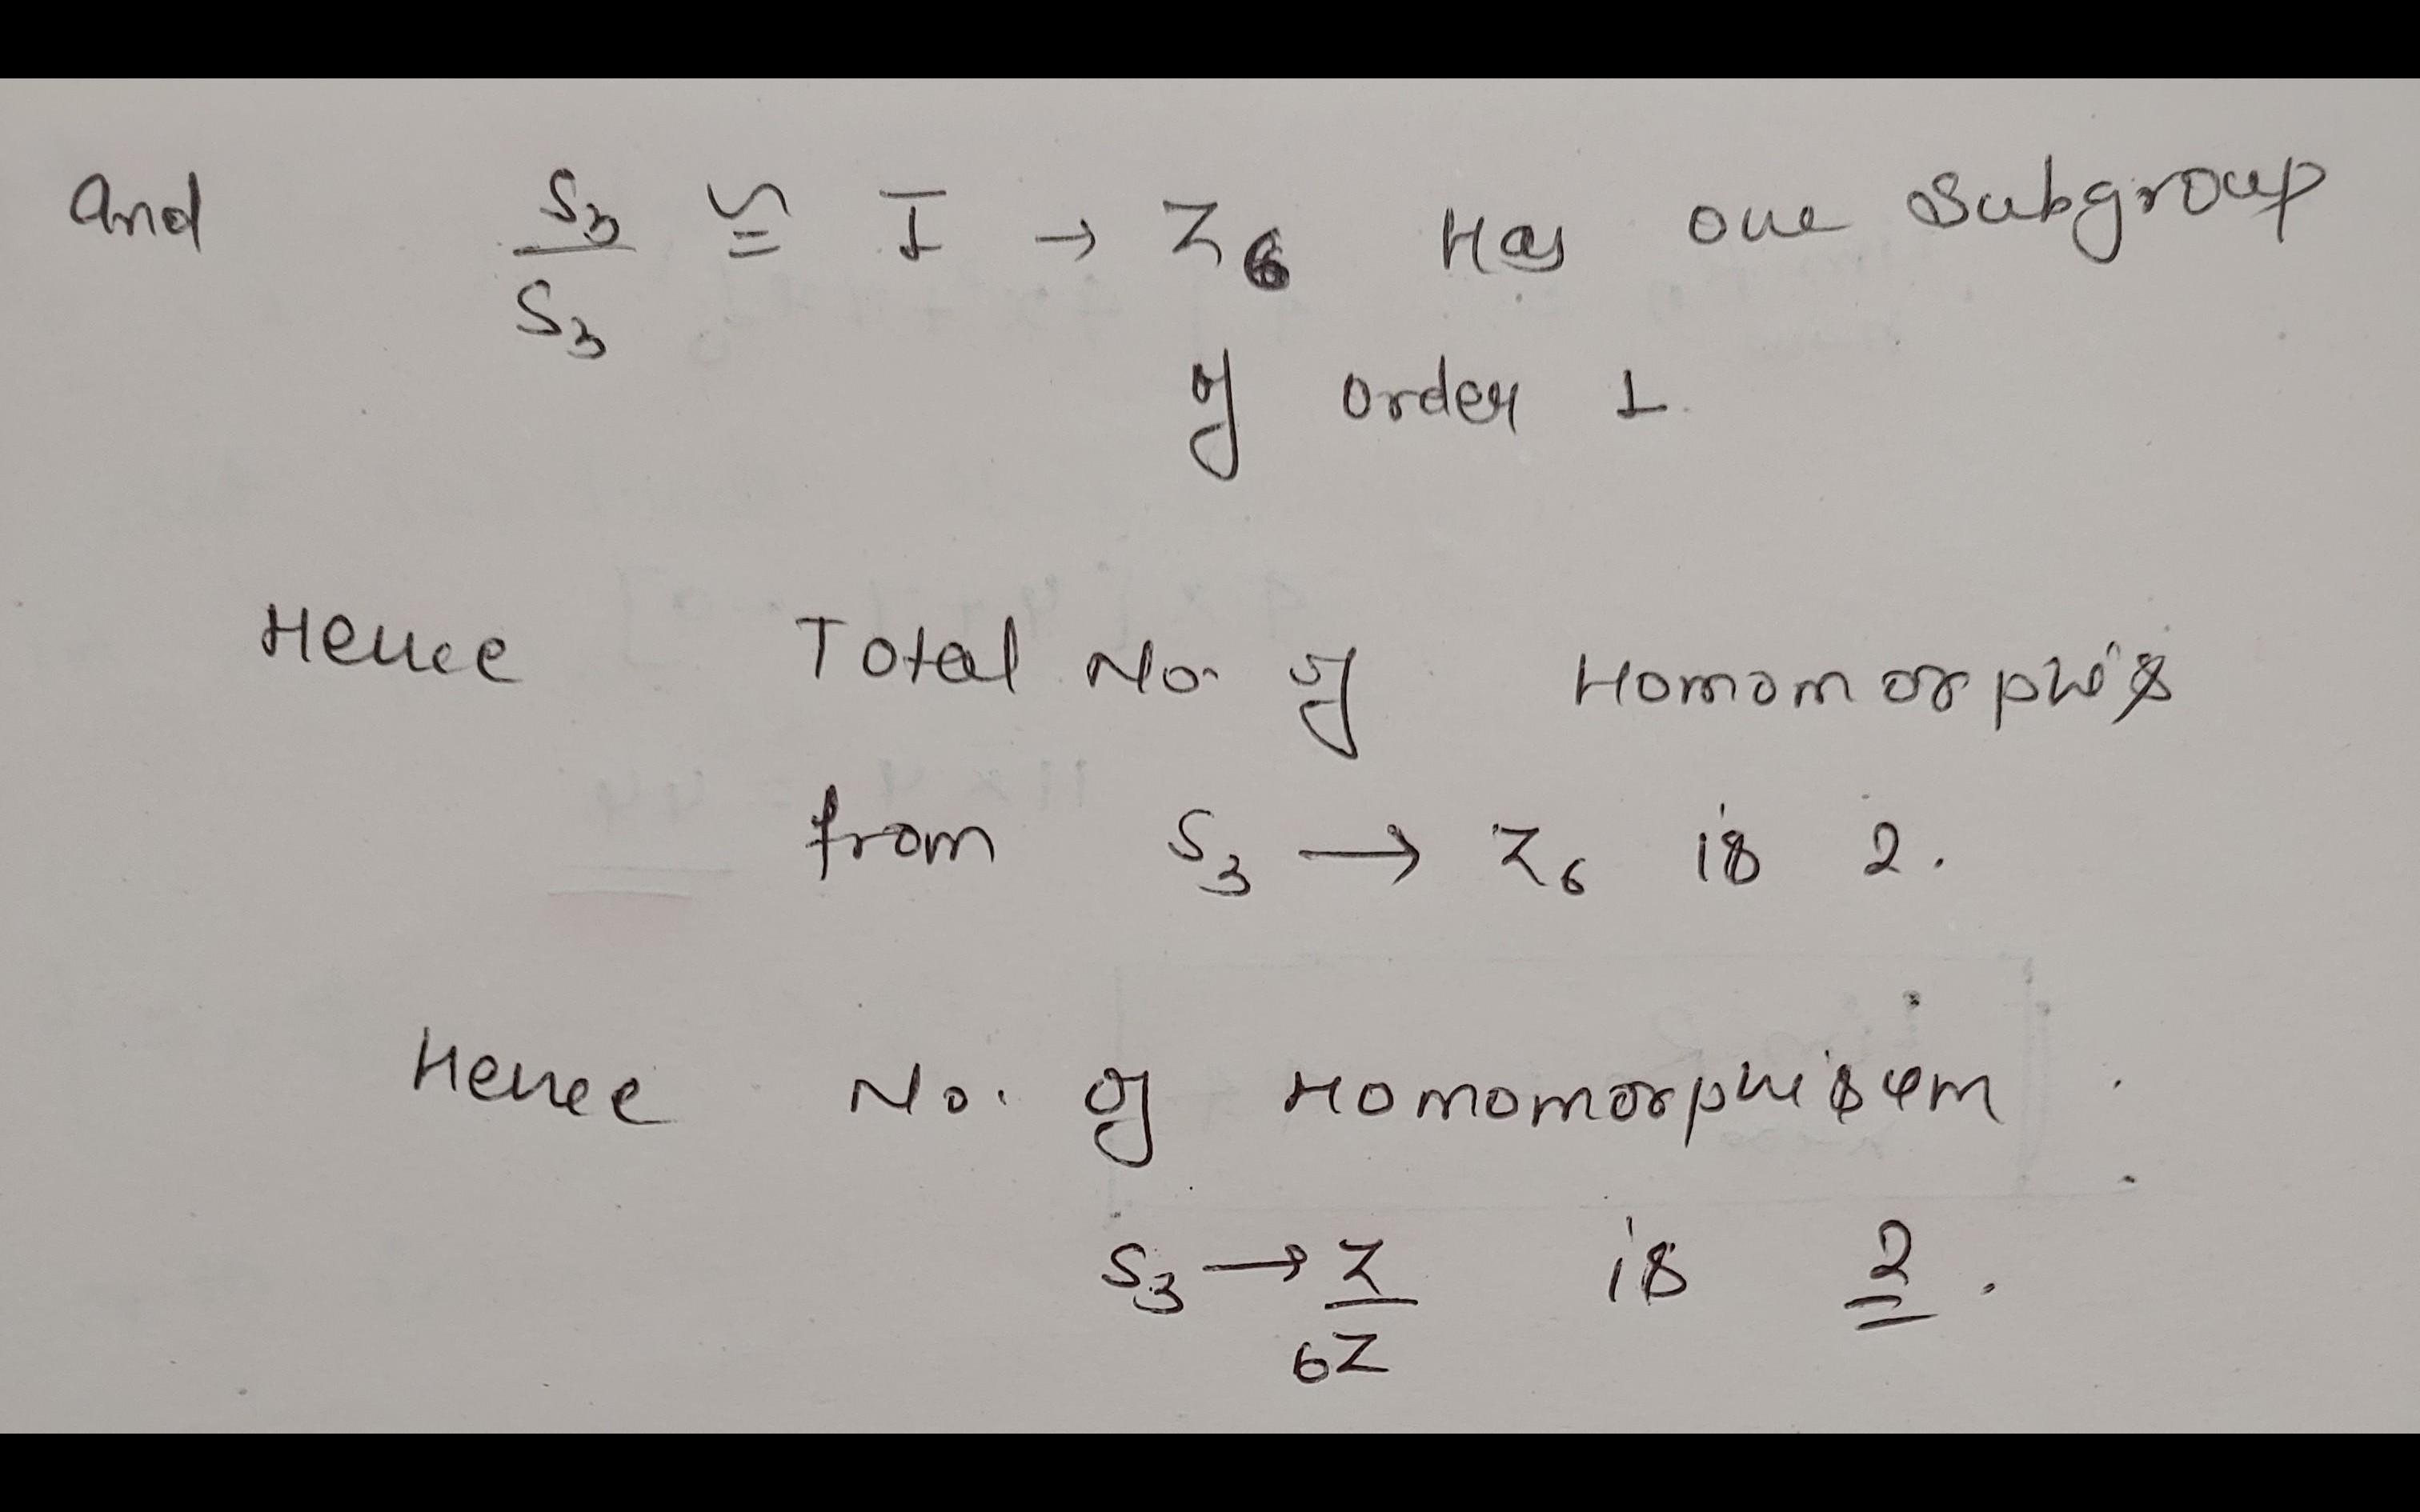 and S3/S3 ≅ I → Z6 Has one Subgroup
of order 1.
Hence Total No. of Homomorphis
from S3 → Z6 is 2.
Hence No. of Homomorphisem
S3 → Z/6Z is 2.